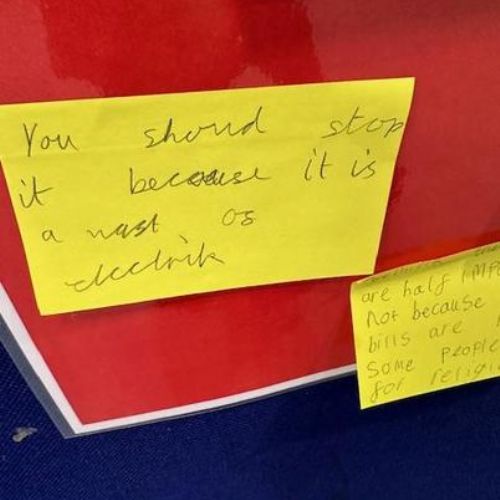 You should stop
it because it is
a wast os
electrik
are half IMPO
not because
bills are
Some people
for religi